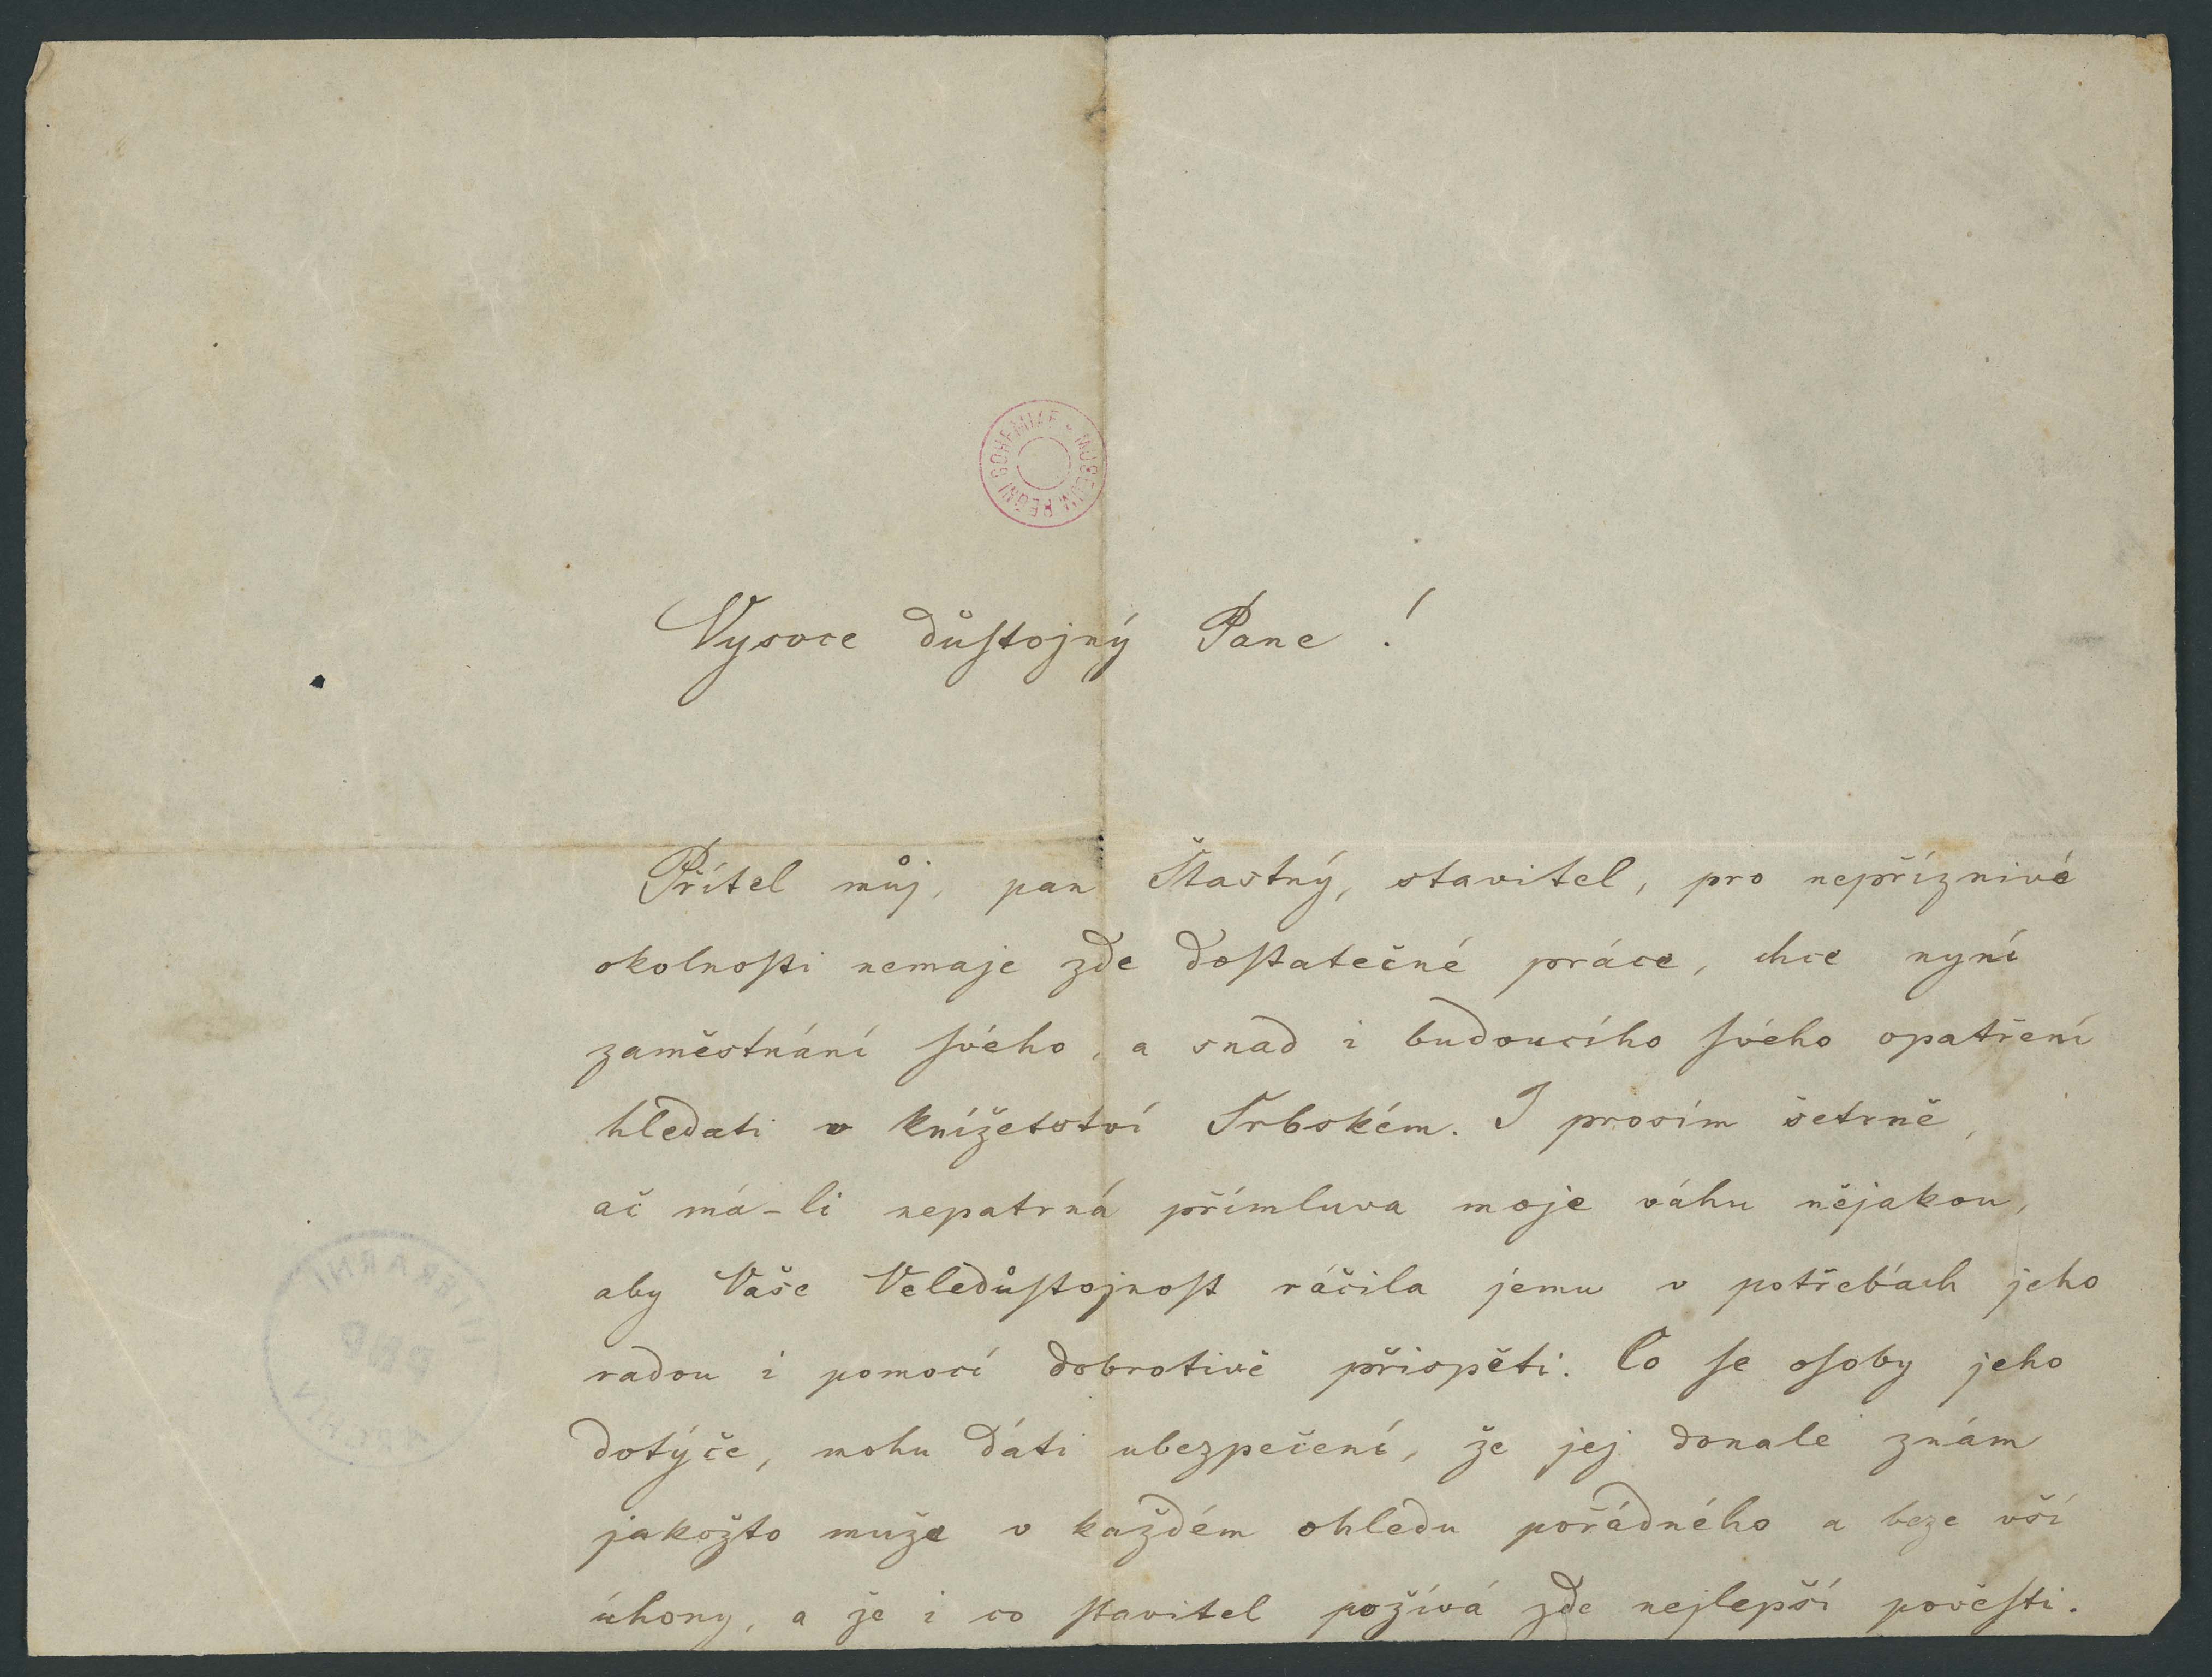 MUSEUM REGNI BOHEMIAE
Vysoce důstojný Pane !
Přítel můj, pan Šťastný, stavitel, pro nepříznivé
okolnosti nemaje zde dostatečné práce, chce nyní
zaměstnání svého, a snad i budoucího svého opatření
hledati v knížetství Srbském. I prosím šetrně,
ač má-li nepatrná přímluva moje váhu nějakou,
aby Vaše Veledůstojnost ráčila jemu v potřebách jeho
radou i pomocí dobrotivě přispěti. Co se osoby jeho
dotýče, mohu dáti ubezpečení, že jej donale znám
jakožto muže v každém ohledu pořádného a beze vší
úhony, a že i co stavitel požívá zde nejlepší pověsti.